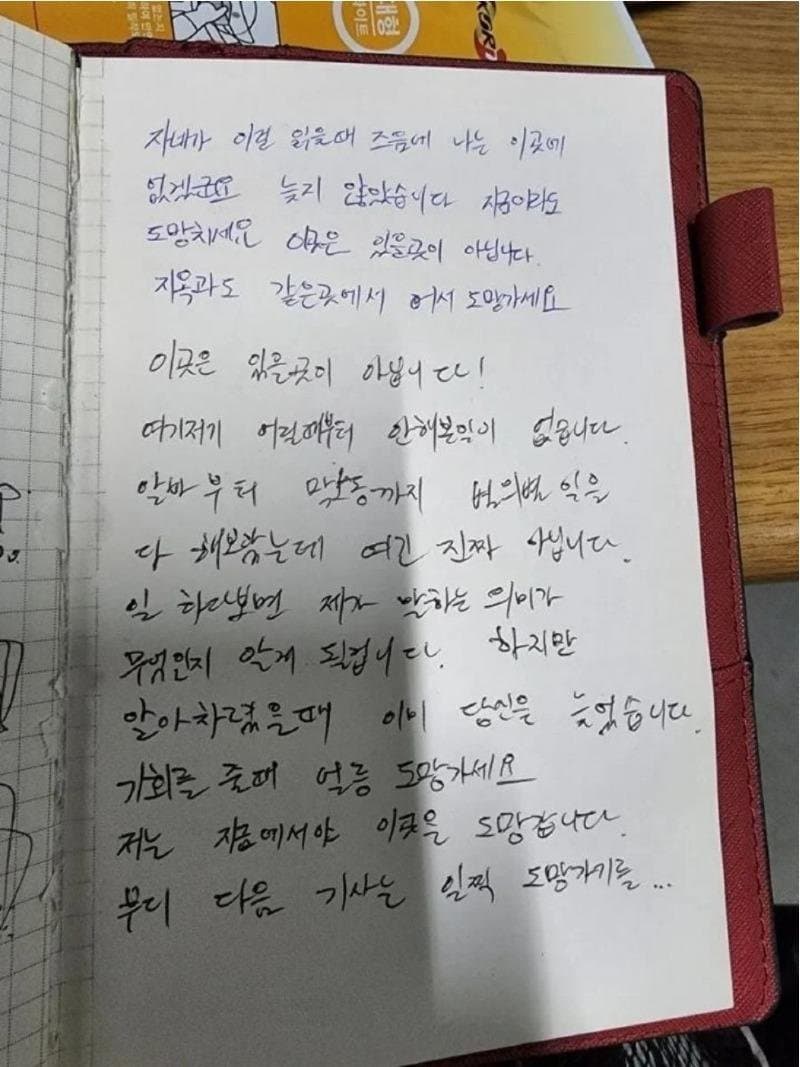 대형
라이트
KORD
자네가 이걸 읽을때 즈음에 나는 이곳에
없겠군요 늦지 않았습니다 지금이라도
도망치세요 이곳은 있을곳이 아닙니다.
지옥과도 같은곳에서 어서 도망가세요
이곳은 있을곳이 아닙니다!
여기저기 어릴때부터 안해본일이 없습니다.
알바부터 막노동까지 별의별 일을
다 해보았는데 여긴 진짜 아닙니다.
일 하다보면 제가 말하는 의미가
무엇인지 알게 될겁니다. 하지만
알아차렸을때 이미 당신은 늦었습니다.
기회를 줄때 얼릉 도망가세요
저는 지금에서야 이곳을 도망갑니다.
부디 다음 기사는 일찍 도망가기를...